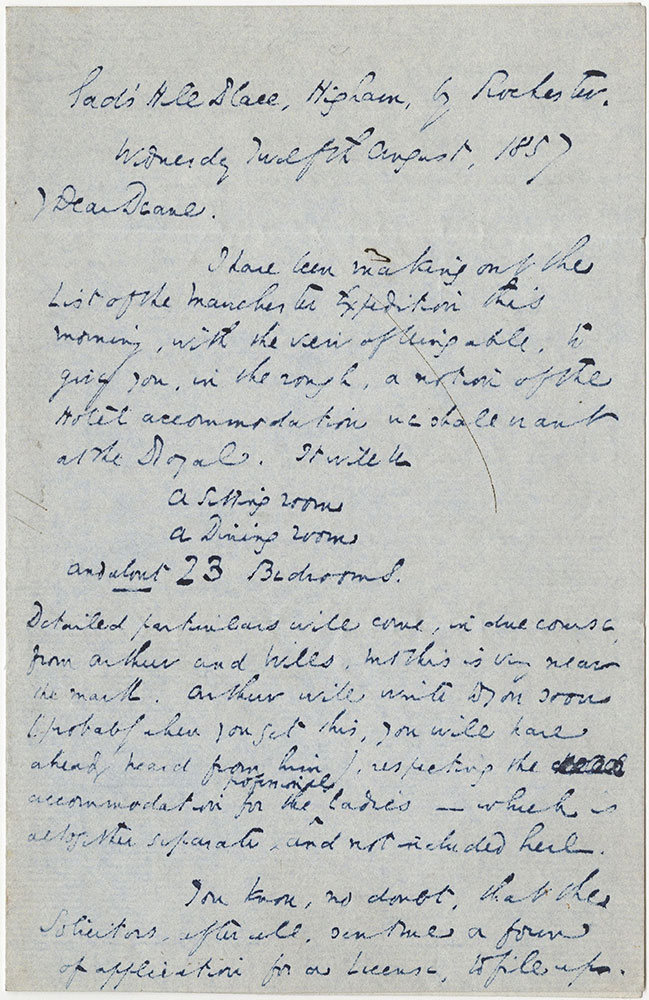 Gad's Hill Place, Higham, by Rochester.
Wednesday Twelfth August, 1857
Dear Deane.
I have been making out the
List of the Manchester Expedition this
morning, with the view of being able, to
give you, in the rough, a notion of the
Hotel accommodation we shall want
at the Royal. It will be
a Sitting room
a Dining room
and about 23 Bedrooms.
Detailed particulars will come, in due course,
from Arthur and Wills, but this is very near
the mark. Arthur will write to you soon
(probably when you get this, you will have
already heard from him), respecting the
accommodation for the professional ladies — which is
altogether separate, and not included here.
You know, no doubt, that the
Solicitors, after all, sent me a form
of application for a License, to fill up.